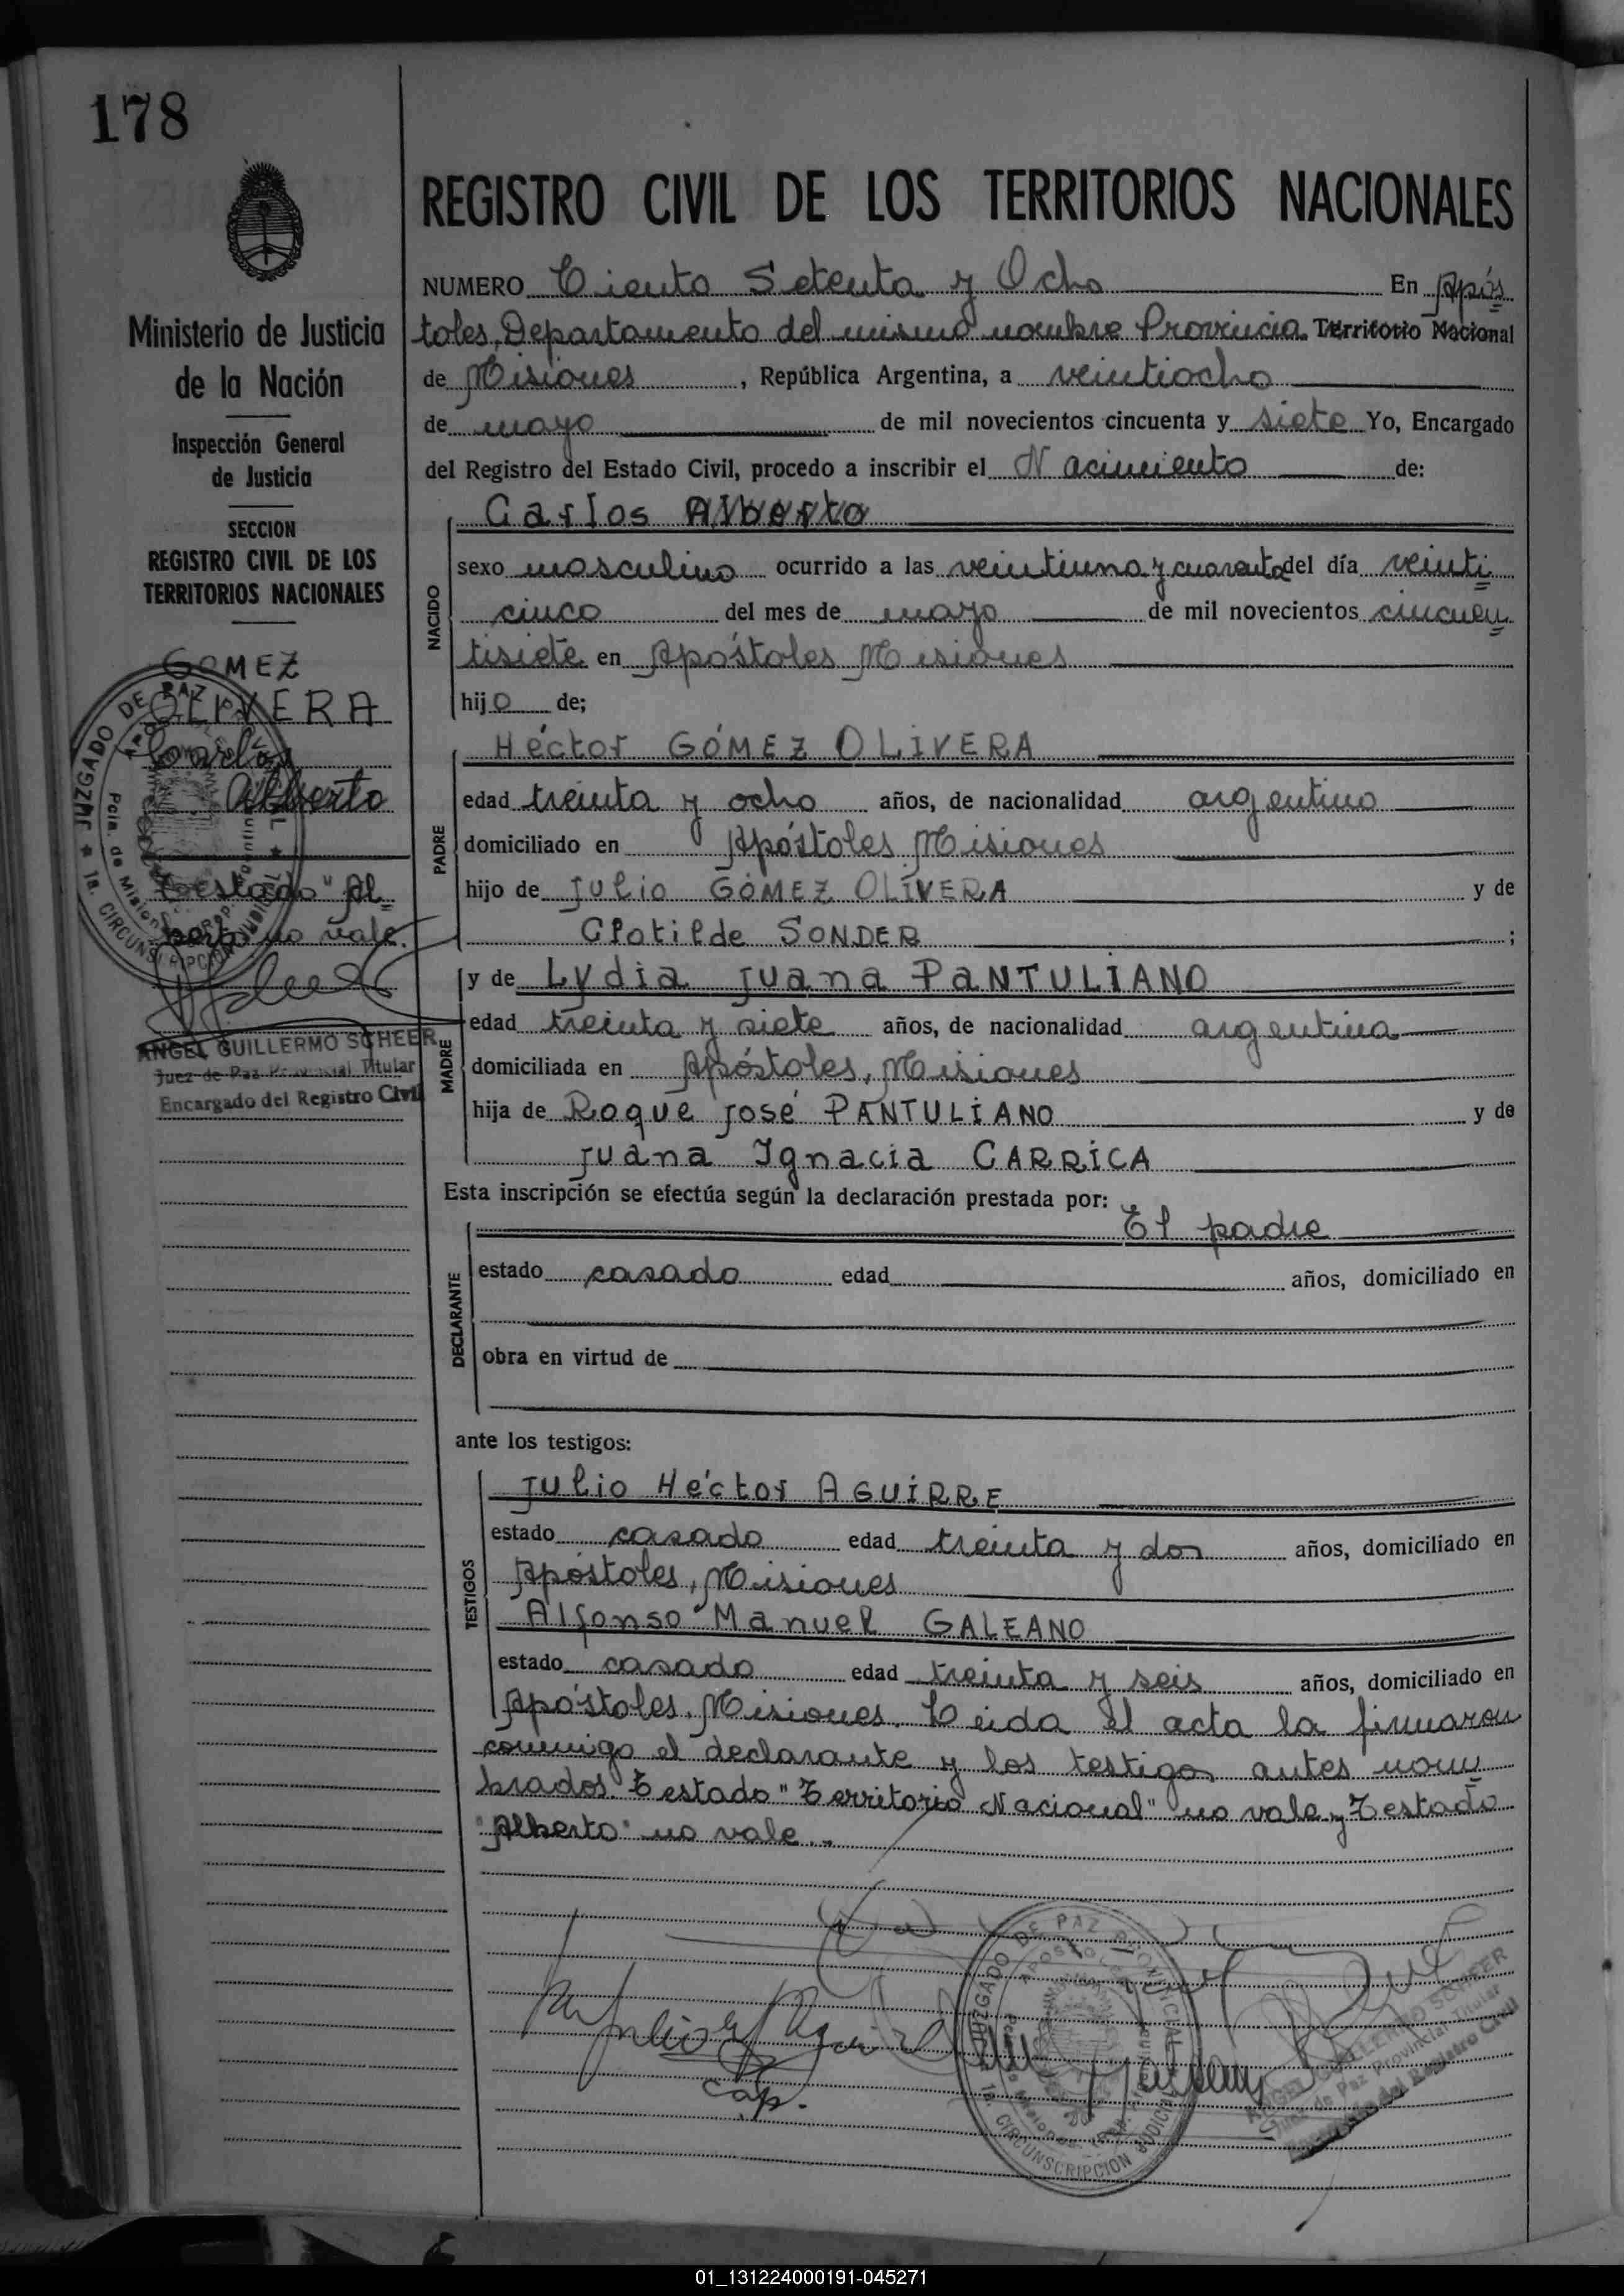 178
REGISTRO CIVIL DE LOS TERRITORIOS NACIONALES
NUMERO Ciento Setenta y Ocho En Após
toles, Departamento del mismo nombre Provincia Territorio Nacional
de Misiones, República Argentina, a veintiocho
de mayo de mil novecientos cincuenta y siete Yo, Encargado
del Registro del Estado Civil, procedo a inscribir el Nacimiento de:
Carlos Alberto
NACIDO
sexo masculino ocurrido a las veintiuna y cuarenta del día veinti
cinco del mes de mayo de mil novecientos cincuen
tisiete en Apóstoles Misiones
hijo de;
PADRE
Héctor GÓMEZ OLIVERA
edad treinta y ocho años, de nacionalidad argentino
domiciliado en Apóstoles Misiones
hijo de Julio GÓMEZ OLIVERA y de
Clotilde SONDER ;
MADRE
y de Lydia Juana PANTULIANO
edad treinta y siete años, de nacionalidad argentina
domiciliada en Apóstoles, Misiones
hija de Roque José PANTULIANO y de
Juana Ignacia CARRICA
Esta inscripción se efectúa según la declaración prestada por:
El padre
DECLARANTE
estado casado edad años, domiciliado en
obra en virtud de
ante los testigos:
TESTIGOS
Julio Héctor AGUIRRE
estado casado edad treinta y dos años, domiciliado en
Apóstoles, Misiones
Alfonso Manuel GALEANO
estado casado edad treinta y seis años, domiciliado en
Apóstoles, Misiones. Leida el acta la firmaron
conmigo el declarante y los testigos antes nom
brados. Testado "Territorio Nacional" no vale y Testado
"Alberto" no vale..
Cap.
JUZGADO DE PAZ PROVINCIAL
APOSTOLES
1a. CIRCUNSCRIPCION JUDICIAL
ANGEL GUILLERMO SCHEER
Juez de Paz Provincial Titular
Encargado del Registro Civil
Ministerio de Justicia
de la Nación
Inspección General
de Justicia
SECCION
REGISTRO CIVIL DE LOS
TERRITORIOS NACIONALES
GOMEZ
OLIVERA
Carlos
Alberto
Testado "Al
berto no vale.
JUZGADO DE PAZ
Pcia. de Misiones
1a. CIRCUNSCRIPCION
ANGEL GUILLERMO SCHEER
Juez de Paz Provincial Titular
Encargado del Registro Civil
01_131224000191-045271